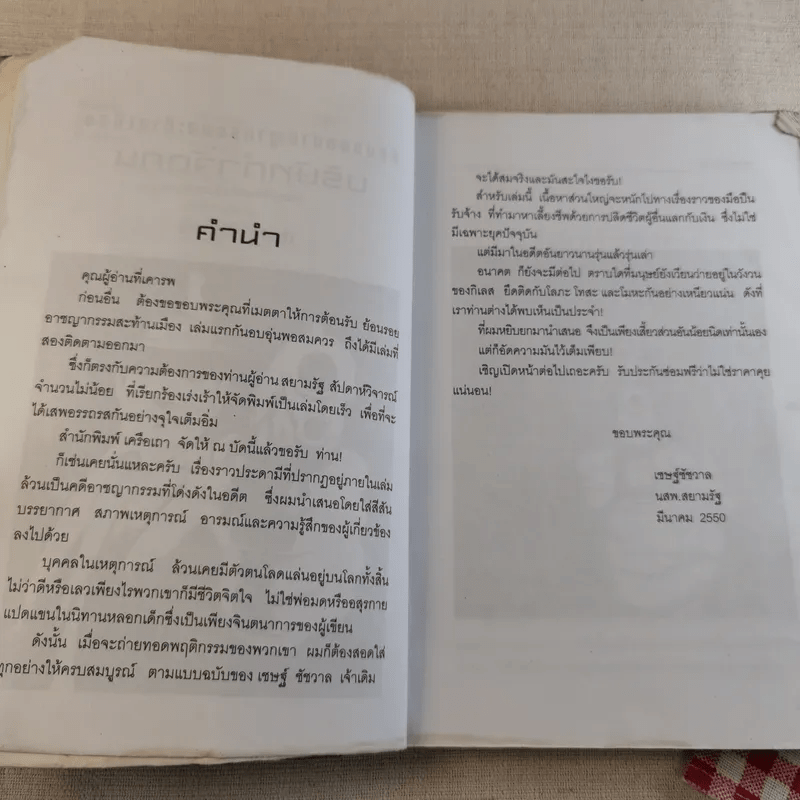 คำนำ
คุณผู้อ่านที่เคารพ
ก่อนอื่น ต้องขอขอบพระคุณที่เมตตาให้การต้อนรับ ย้อนรอย
อาชญากรรมสะท้านเมือง เล่มแรกกันอบอุ่นพอสมควร ถึงได้มีเล่มที่
สองติดตามออกมา
ซึ่งก็ตรงกับความต้องการของท่านผู้อ่าน สยามรัฐ สัปดาห์วิจารณ์
จำนวนไม่น้อย ที่เรียกร้องเร่งเร้าให้จัดพิมพ์เป็นเล่มโดยเร็ว เพื่อที่จะ
ได้เสพอรรถรสกันอย่างจุใจเต็มอิ่ม
สำนักพิมพ์ เครือเถา จัดให้ ณ บัดนี้แล้วขอรับ ท่าน!
ก็เช่นเคยนั่นแหละครับ เรื่องราวประดามีที่ปรากฏอยู่ภายในเล่ม
ล้วนเป็นคดีอาชญากรรมที่โด่งดังในอดีต ซึ่งผมนำเสนอโดยใส่สีสัน
บรรยากาศ สภาพเหตุการณ์ อารมณ์และความรู้สึกของผู้เกี่ยวข้อง
ลงไปด้วย
บุคคลในเหตุการณ์ ล้วนเคยมีตัวตนโลดแล่นอยู่บนโลกทั้งสิ้น
ไม่ว่าดีหรือเลวเพียงไรพวกเขาก็มีชีวิตจิตใจ ไม่ใช่พ่อมดหรืออสุรกาย
แปดแขนในนิทานหลอกเด็กซึ่งเป็นเพียงจินตนาการของผู้เขียน
ดังนั้น เมื่อจะถ่ายทอดพฤติกรรมของพวกเขา ผมก็ต้องสอดใส่
ทุกอย่างให้ครบสมบูรณ์ ตามแบบฉบับของ เชษฐ์ ชัชวาล เจ้าเดิม
จะได้สมจริงและมันสะใจไงขอรับ!
สำหรับเล่มนี้ เนื้อหาส่วนใหญ่จะหนักไปทางเรื่องราวของมือปืน
รับจ้าง ที่ทำมาหาเลี้ยงชีพด้วยการปลิดชีวิตผู้อื่นแลกกับเงิน ซึ่งไม่ใช่
มีเฉพาะยุคปัจจุบัน
แต่มีมาในอดีตอันยาวนานรุ่นแล้วรุ่นเล่า
อนาคต ก็ยังจะมีต่อไป ตราบใดที่มนุษย์ยังเวียนว่ายอยู่ในวังวน
ของกิเลส ยึดติดกับโลภะ โทสะ และโมหะกันอย่างเหนียวแน่น ดังที่
เราท่านต่างได้พบเห็นเป็นประจำ!
ที่ผมหยิบยกมานำเสนอ จึงเป็นเพียงเสี้ยวส่วนอันน้อยนิดเท่านั้นเอง
แต่ก็อัดความมันไว้เต็มเพียบ!
เชิญเปิดหน้าต่อไปเถอะครับ รับประกันซ่อมฟรีว่าไม่ใช่ราคาคุย
แน่นอน!
ขอบพระคุณ
เชษฐ์ชัชวาล
นสพ.สยามรัฐ
มีนาคม 2550